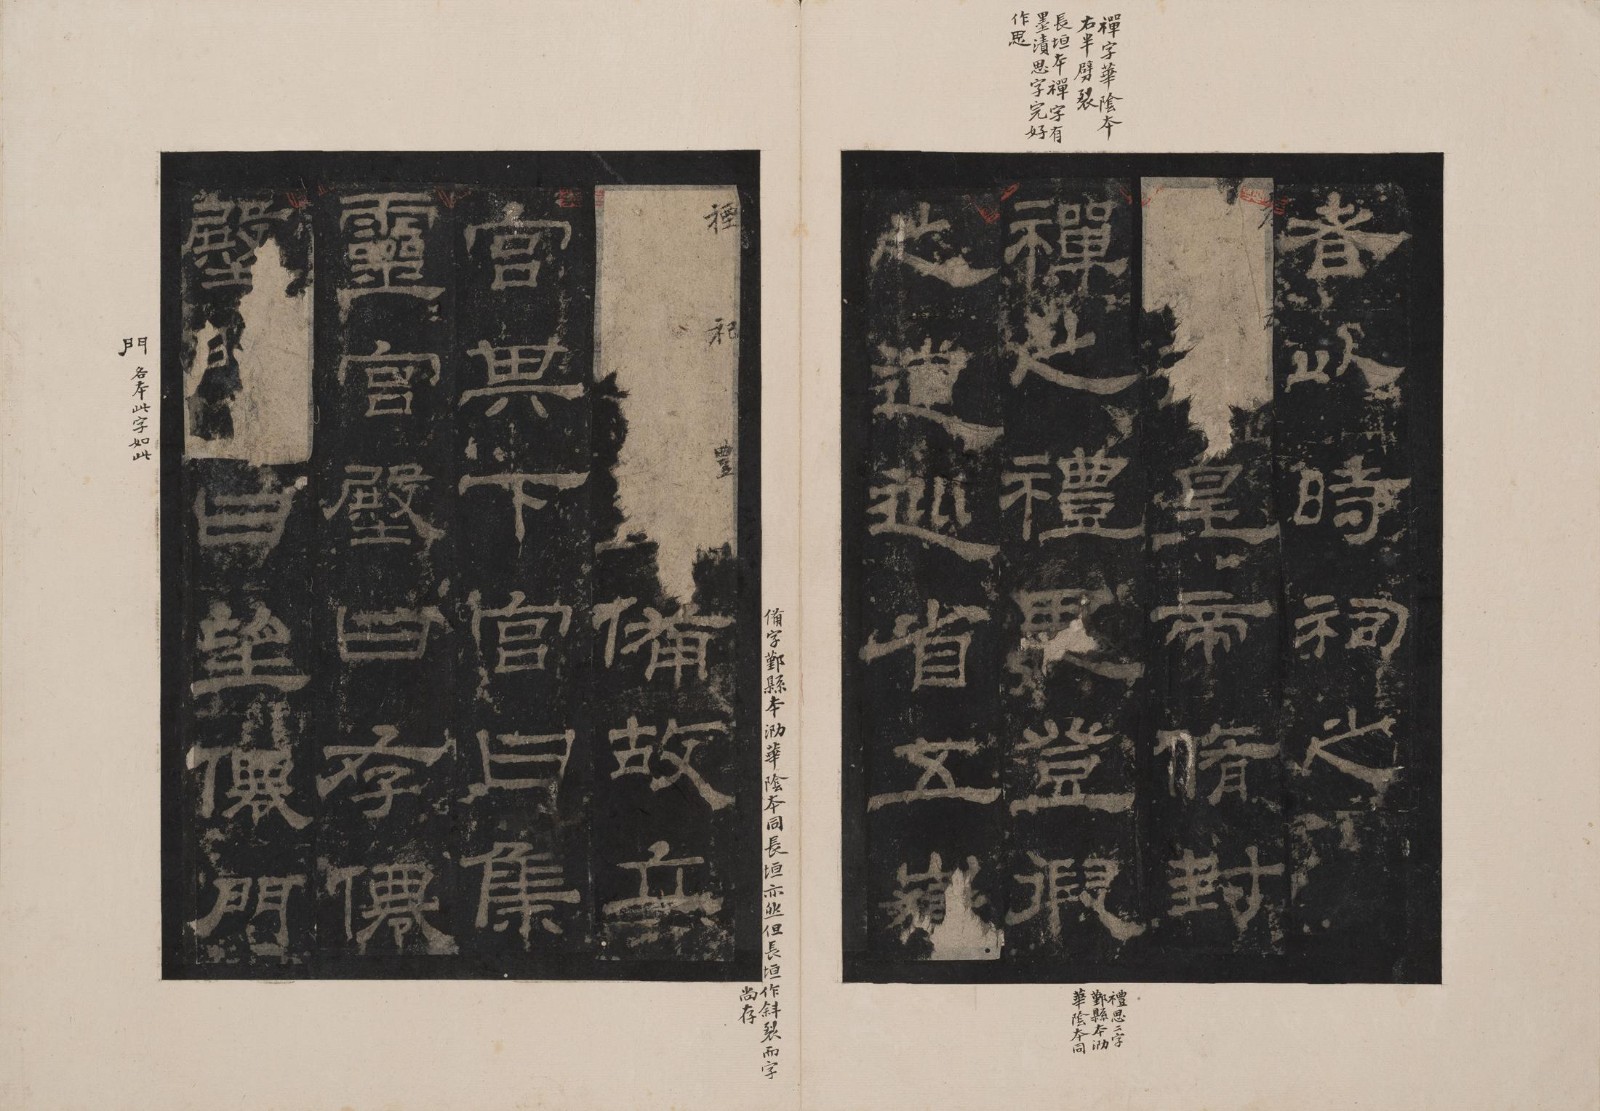 禪字華陰本
右半劈裂
長垣本禪字有
墨漬思字完好
作思
者以時祠之
皇帝脩封
禪之禮思登徦
之道巡省五嶽
禮思二字
鄞縣本泐
華陰本同
備字鄞縣本泐華陰本同長垣亦然但長垣作斜裂而字
尚存
禋祀豐備故立
宮其下宮曰集
靈宮壂曰存僊
壂門曰望僊門
門各本此字如此